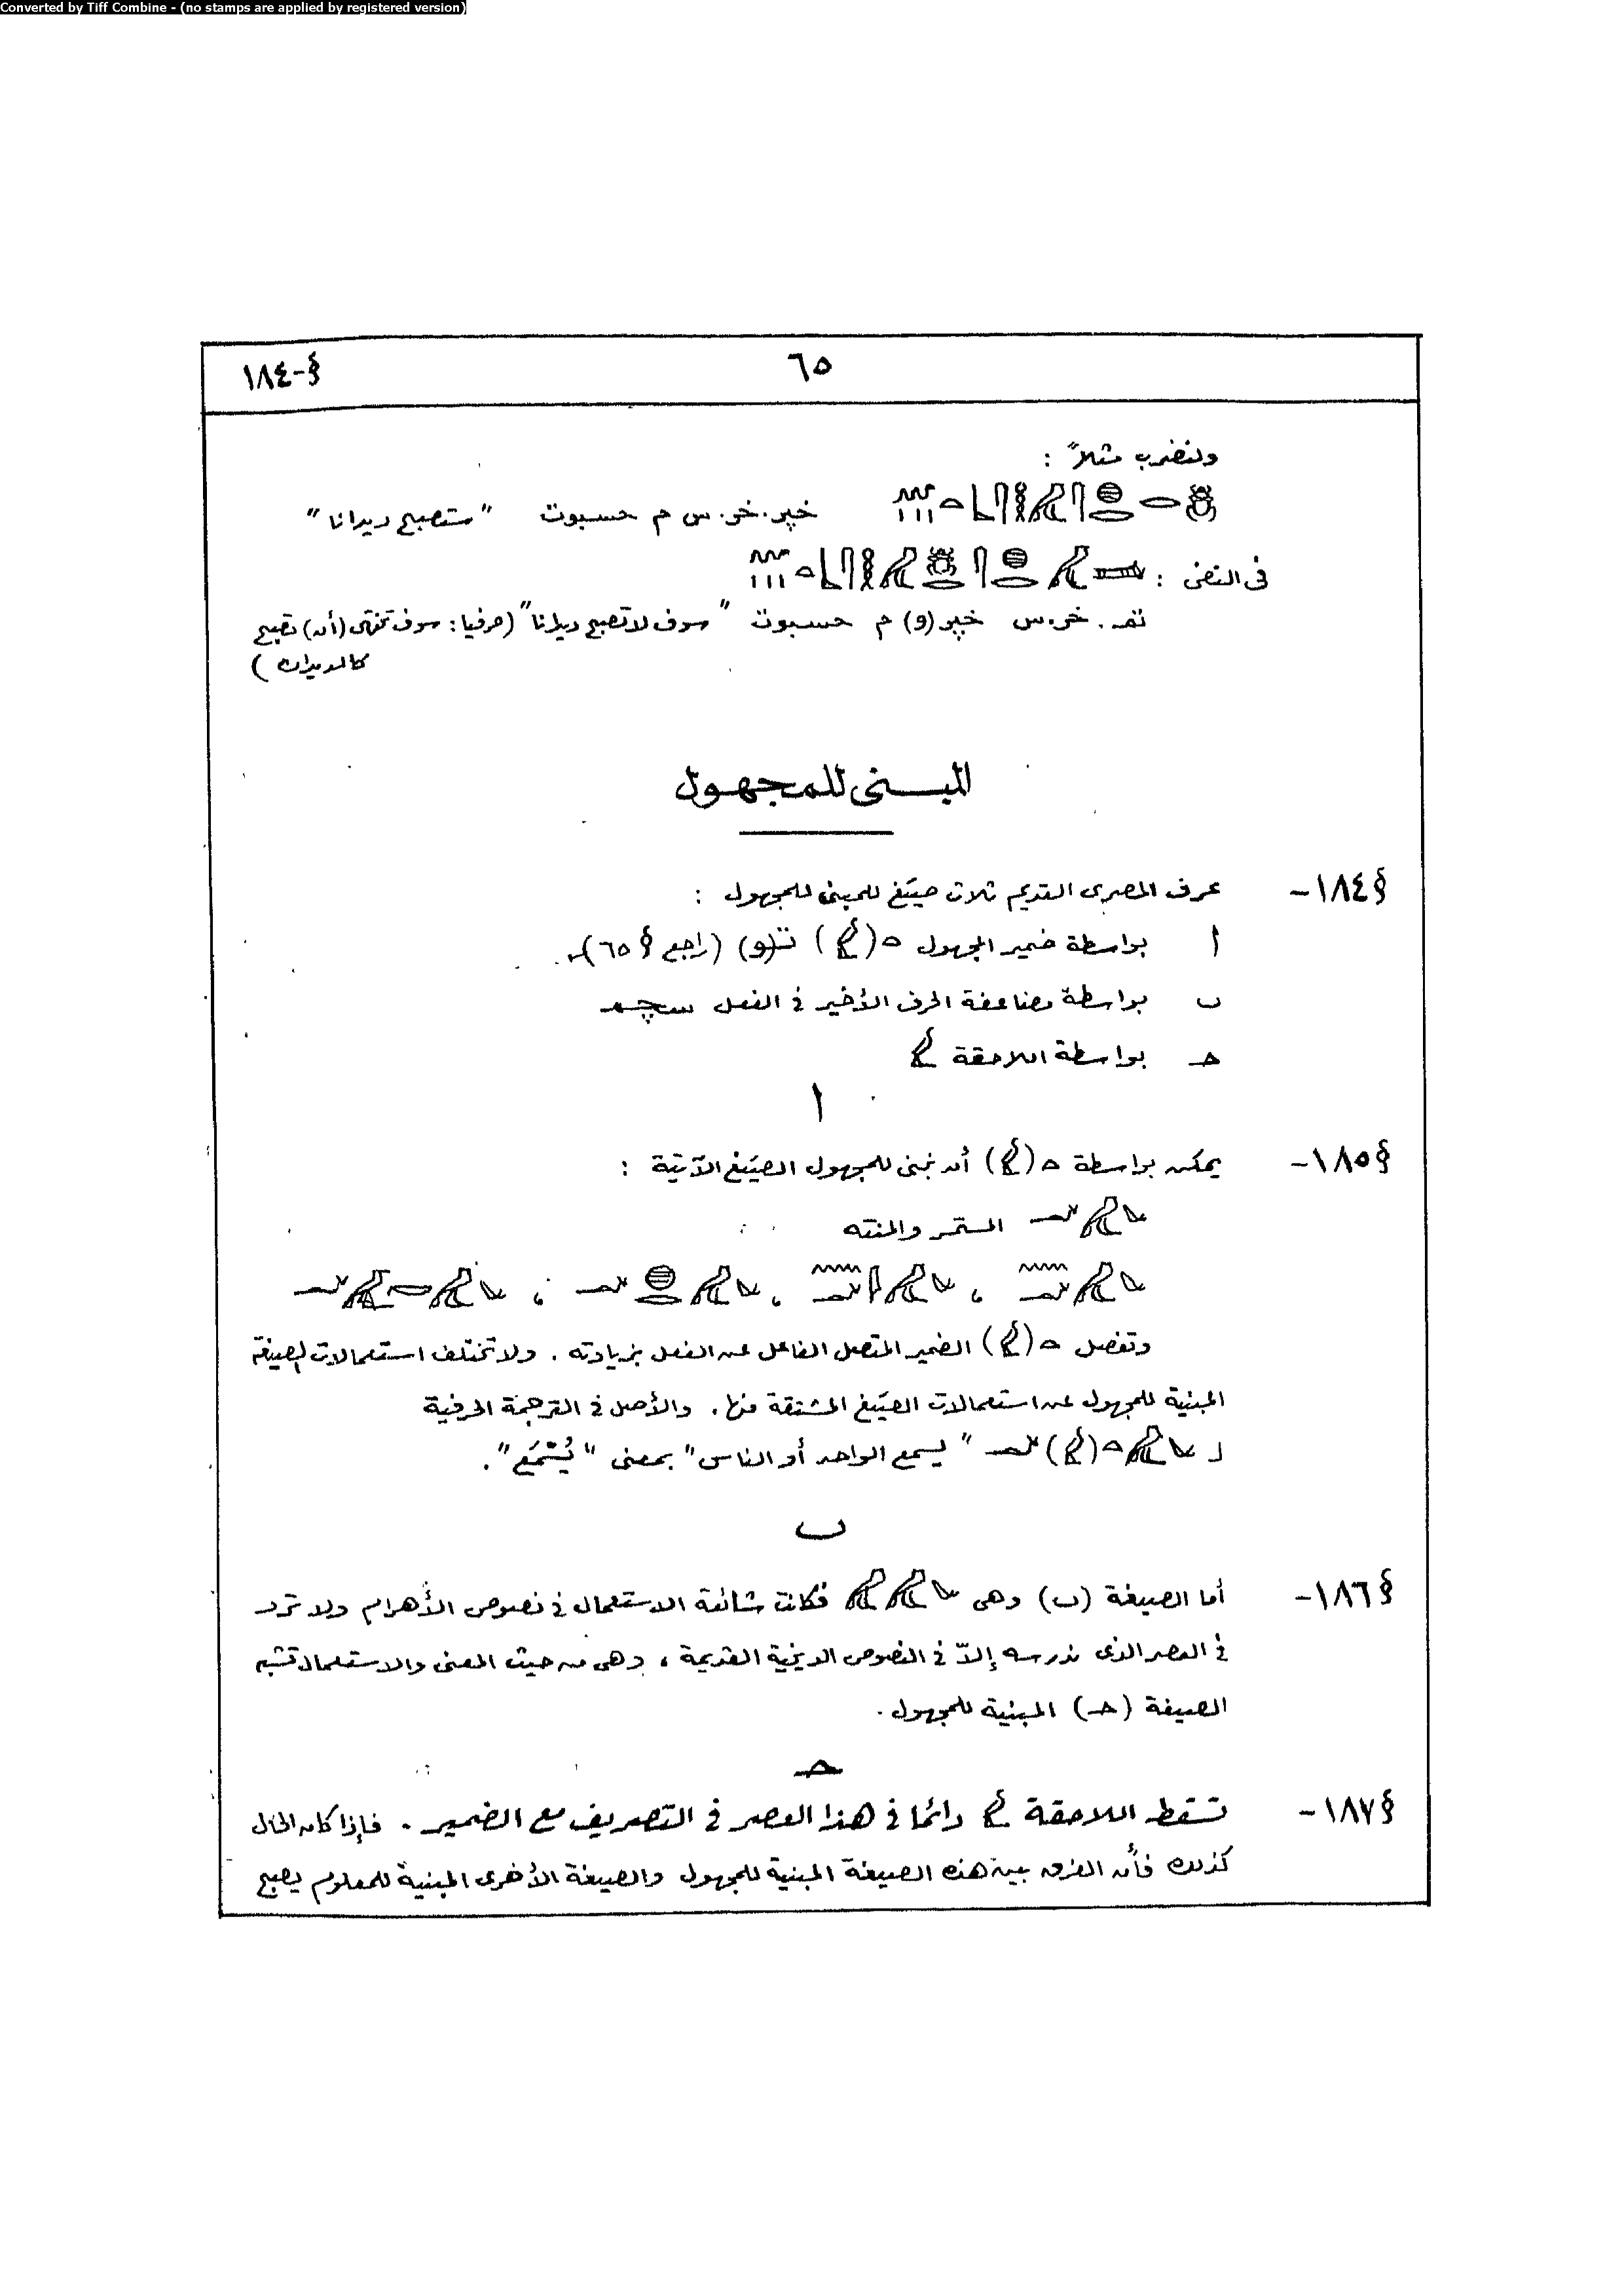 Converted by Tiff Combine - (no stamps are applied by registered version)
§-١٨٤
٦٥
ولنضرب مثلاً :
خپر.خر.س م حسبوت "ستصبح ديدانا"
فى النفى :
تم. خر.س خپر(و) م حسبوت "سوف لا تصبح ديدانا" (حرفيا: سوف تنتهى (أن) تصبح
كالديدان )
المبنى للمجهول
§١٨٤- عرف المصرى القديم ثلاث صيَغ للمبنى للمجهول :
أ بواسطة ضمير المجهول ( ) ت(و) (راجع § ٦٥).
ب بواسطة مضاعفة الحرف الأخير فى الفعل سچم
حـ بواسطة اللاحقة
ا
§١٨٥- يمكن بواسطة ( ) أن نبنى للمجهول الصيَغ الآتية :
المستمر والمنته
، ، ،
وتفصل ( ) الضمير المتصل الفاعل عن الفعل بزيادته . ولا تختلف استعمالات الصيغة
المبنية للمجهول عن استعمالات الصيَغ المشتقة منها . والأصل فى الترجمة الحرفية
لـ ( ) "يسمع الواحد أو الناس" بمعنى "يُسْمَع" .
ب
§١٨٦- أما الصيغة (ب) وهى فكانت شائعة الاستعمال فى نصوص الأهرام ولا ترد
فى العصر الذى ندرسه إلاّ فى النصوص الدينية القديمة ، وهى من حيث المعنى والاستعمال تشبه
الصيغة (حـ) المبنية للمجهول .
حـ
§١٨٧- تسقط اللاحقة دائما فى هذا العصر فى التصريف مع الضمير . فإذا كان الحال
كذلك فأن الفرق بين هذه الصيغة المبنية للمجهول والصيغة الأخرى المبنية للمعلوم يصبح